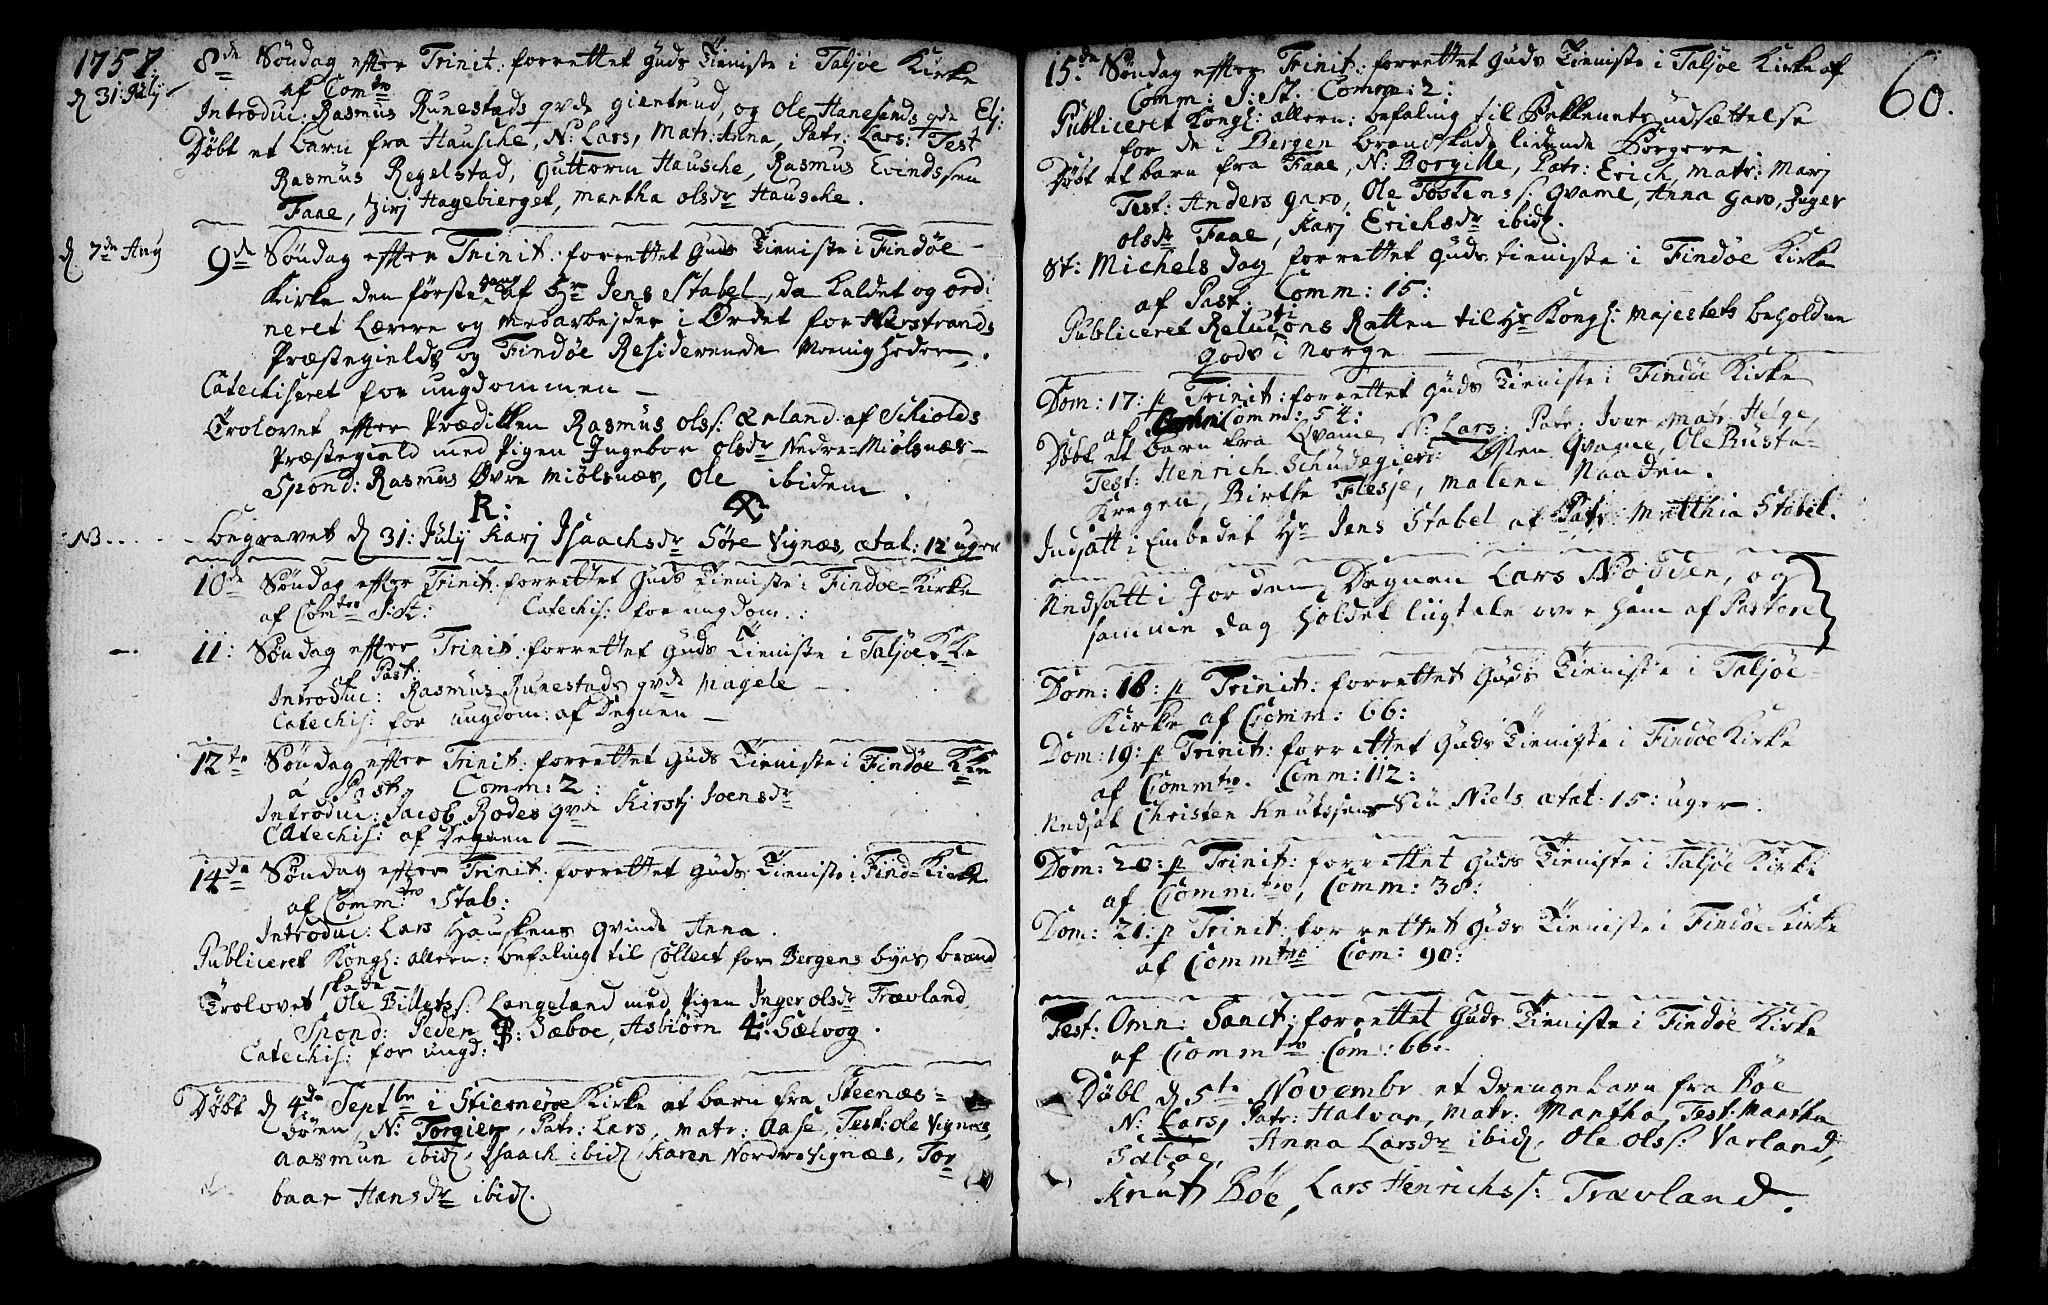 1757.
8de Søndag effter Trinit: forrettet Guds Tieniste i Taljøe Kirke
d 31: Julij
af Comtro
Introduc: Rasmus Runestads qvde gientrud, og Ole Hanesands qde Elj:
Døbt et barn fra Hausche, N: Lars, Matr: Anna, Patr: Lars: Test
Rasmus Regelstad, Guttorm Hausche, Rasmus Evindssen
Faae, Zirj Hagebierget, Martha olsdr Hausche.
d 7de Aug
9de Søndag effter Trinit: forrettet Guds Tieniste i Findøe
Kirke den første gang af Hr Jens Stabel, da kaldet og ordi
neret Lærere og medarbejder i Ordet for Nerstrands
Præstegields og Findøe Residerende Menigheder.
Catechiseret for ungdommen
Trolovet effter Prædiken Rasmus olss: Ærland af Schiolds
Præstegield med Pigen Ingebor olsdr Nedre Miølsnæs
Spond: Rasmus Øvre Miølsnæs, Ole ibidem.
R:
NB
begravet d 31: Julij Karj Isaachsdr Søre Vignæs, ætat: 12 uger
10de Søndag effter Trinit: forrettet Guds Tieniste i Findøe Kirke
af Comtro J: St: Catechis: for ungdom:
11: Søndag effter Trinit: forrettet Guds Tieniste i Taljøe Kke
af Past:
Introduc: Rasmus Runestads qvde Magele
Catechis: for ungdom: af Degnen
12te Søndag effter Trinit: forrettet Guds Tieniste i Findøe Kke
a Past, Comm: 2:
Introduc: Jacob Rodes qvde Kirstj Joensdr
Catechis: af Degnen
14de Søndag effter Trinit: forrettet Guds Tieniste i Find= Kirke
af Commtro Stab:
Introduc: Lars Hauskens qvinde Anna.
Publiceret Kongl: allern: befaling til Collect for Bergens byes brand
skade
Trolovet Ole Billetss: Langeland med Pigen Inger olsdr Trævland
Spond: Peder P: Sæboe, Asbiørn 4: Sælvog.
Catechis: for ungd:
Døbt d 4de Septbr i Stiernerøe Kirke et barn fra Steenæs=
døen, N: Torgier, Patr: Lars, Matr: Aase, Test: Ole Vignæs,
Aasmun ibid, Isaach ibid, Karen Nordre Vignæs, Tor
baar Hansdr ibid.
60.
15de Søndag effter Trinit: forrettet Guds Tieniste i Taljøe Kirke af
Comm: J: St. Comm: 2:
Publiceret Kongl: allern: befaling til Bekkenets udsættelse
for de i Bergen brandskade lidende Borgere
Døbt et barn fra Faae, N: Borgille, Patr: Erich, Matr: Marj
Test: Anders garo, Ole Tostenss: Qvame, Anna Garo, Inger
olsdr Faae, Karj Erichsdr ibid.
St: Michels dag forrettet Guds tieniste i Findøe Kirke
af Past: Comm: 15:
Publiceret Relutions Retten til Hs Kongl: Majestets beholdne
gods i Norge
Dom: 17: p Trinit: forrettet Guds Tieniste i Findøe Kirke
af Comm: 54:
Døbt et barn fra Qvame, N: Lars: Patr: Iver, Matr: Helge,
Test: Henrich Schudegier: Østen Qvame, Ole Busta=
Kregen, Birthe Flesje, Malene Naaden.
Indsatt i Embedet Hr Jens Stabel af Patr: Matthia Stabel.
Nedsatt i Jorden, Degnen Lars Nodden, og
samme dag Holdet liigtale over ham af Pastore
Dom: 18: p Trinit: forrettet Guds Tieniste i Taljøe=
Kirke af Comm: 66:
Dom: 19: p Trinit: forrettet Guds Tieniste i Findøe Kirke
af Commtro. Comm: 112:
Nedsat Christen Knutssens Søn Niels ætat: 15: uger.
Dom: 20: p Trinit: forrettet Guds Tieniste i Taljøe Kirke
af Commtro, Comm: 38:
Dom: 21: p Trinit: forrettet Guds Tieniste i Findøe Kirke
af Commtro Com: 90:
Fest: Omn: Sanct: forrettet Guds Tieniste i Findøe Kirke
af Commtro Com: 66.
Døbt d 5te Novembr et drenge barn fra Bøe
N: Lars, Patr: Halvar, Matr. Martha, Test: Martha
Sæbøe, Anna Larsdr ibid, Ole Olss: Varland,
Knut Bøe, Lars Henrichss: Trævland.